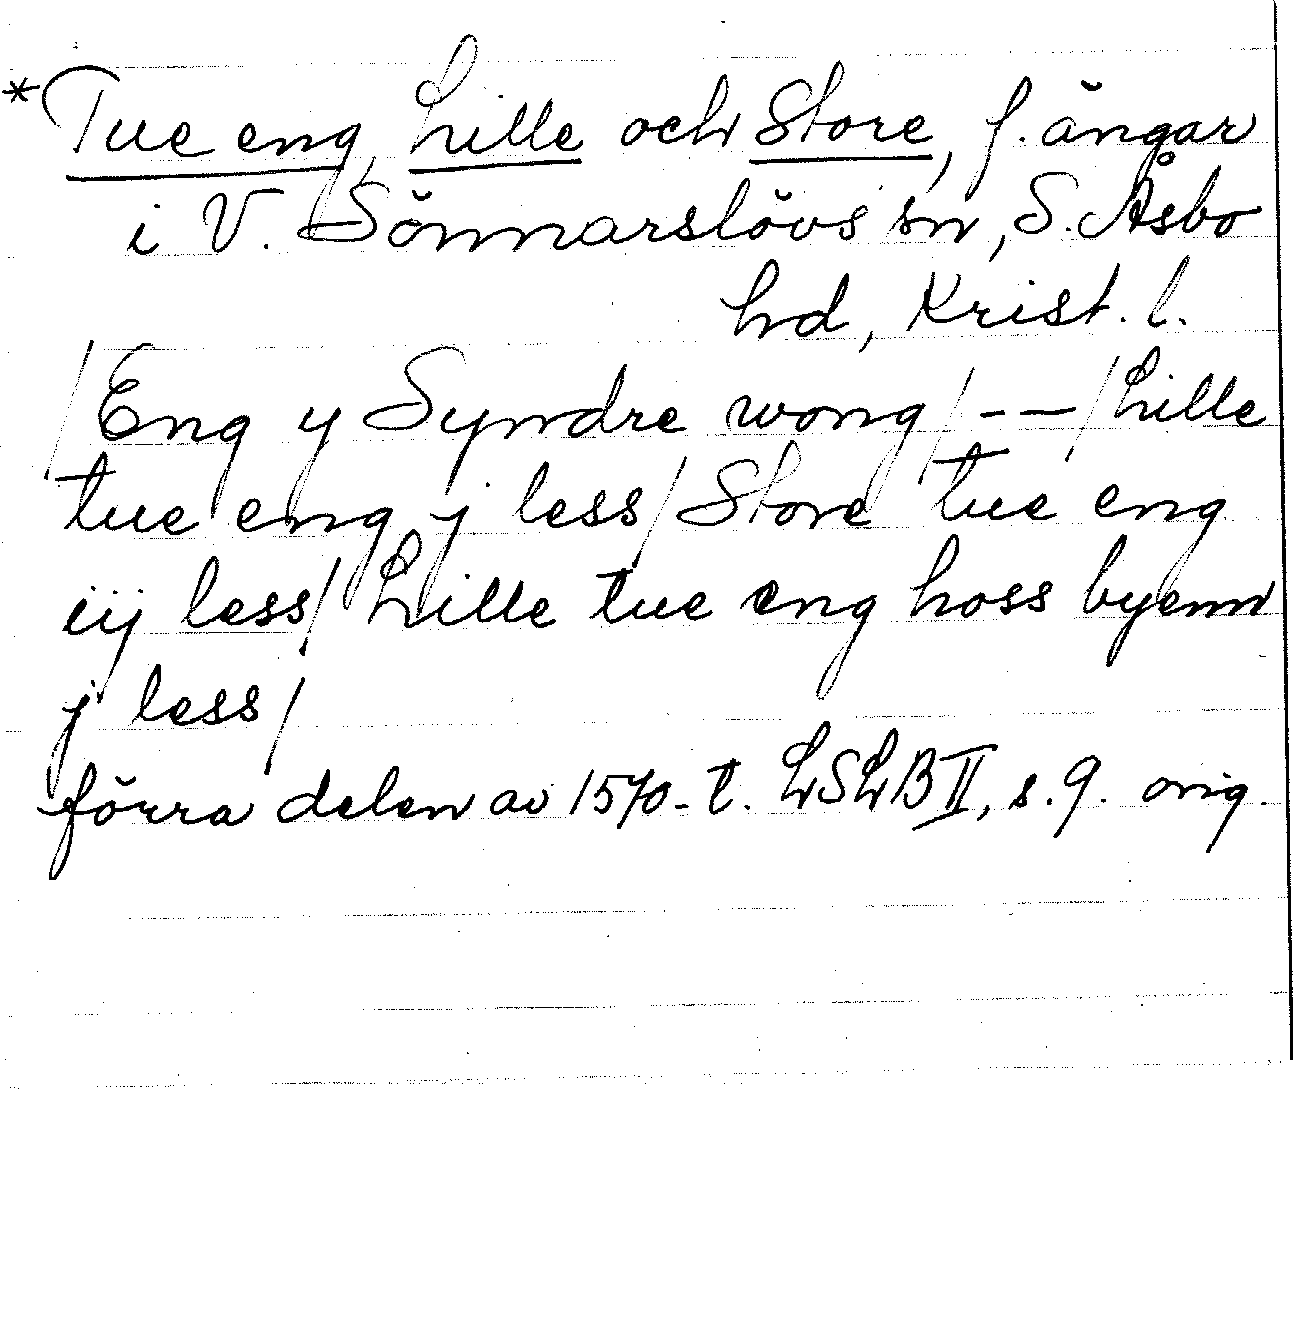 *Tue eng, Lille och Store, f. ängar
i V. Sönnarslövs sn, S. Åsbo
hd, Krist. l.
/Eng y Syndre wong/--/Lille
tue eng j less/Store tue eng
iij less/Lille tue eng hoss byenn
j less/
förra delen av 1570-t. LSLB II, s. 9. orig.